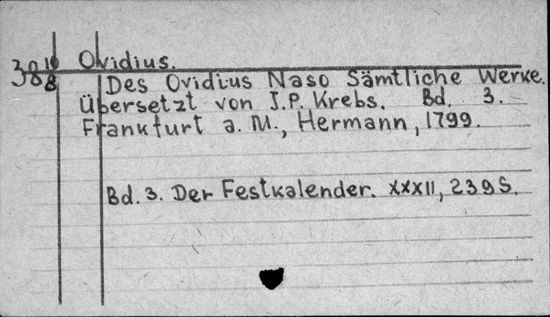 Ovidius.
Des Ovidius Naso Sämtliche Werke.
Übersetzt von J.P. Krebs. Bd. 3.
Frankfurt a. M., Hermann, 1799.
Bd. 3. Der Festkalender. XXXII, 239 S.